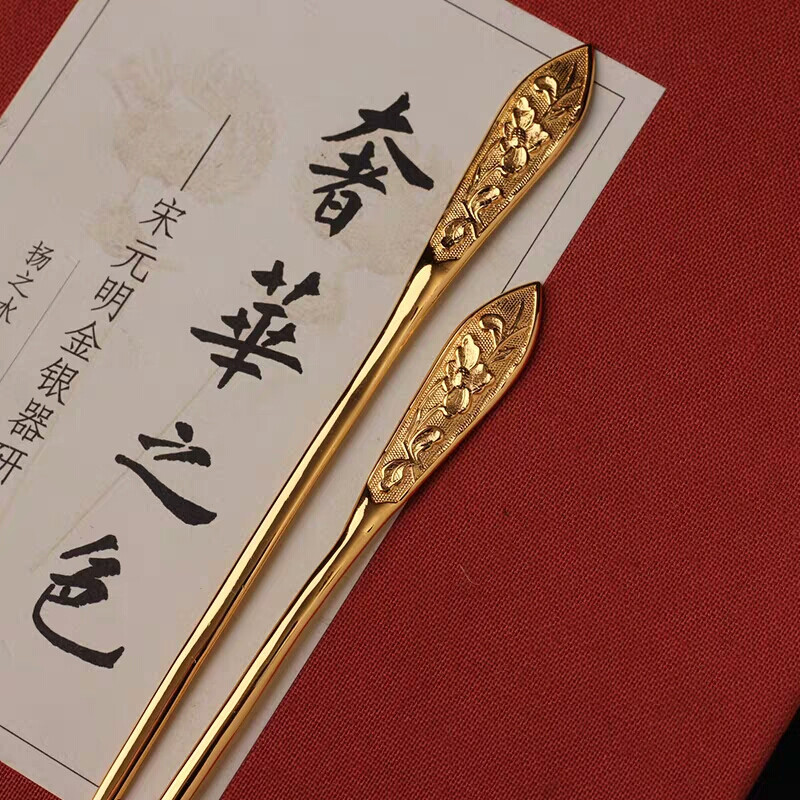 奢華之色
——宋元明金银器研
扬之水